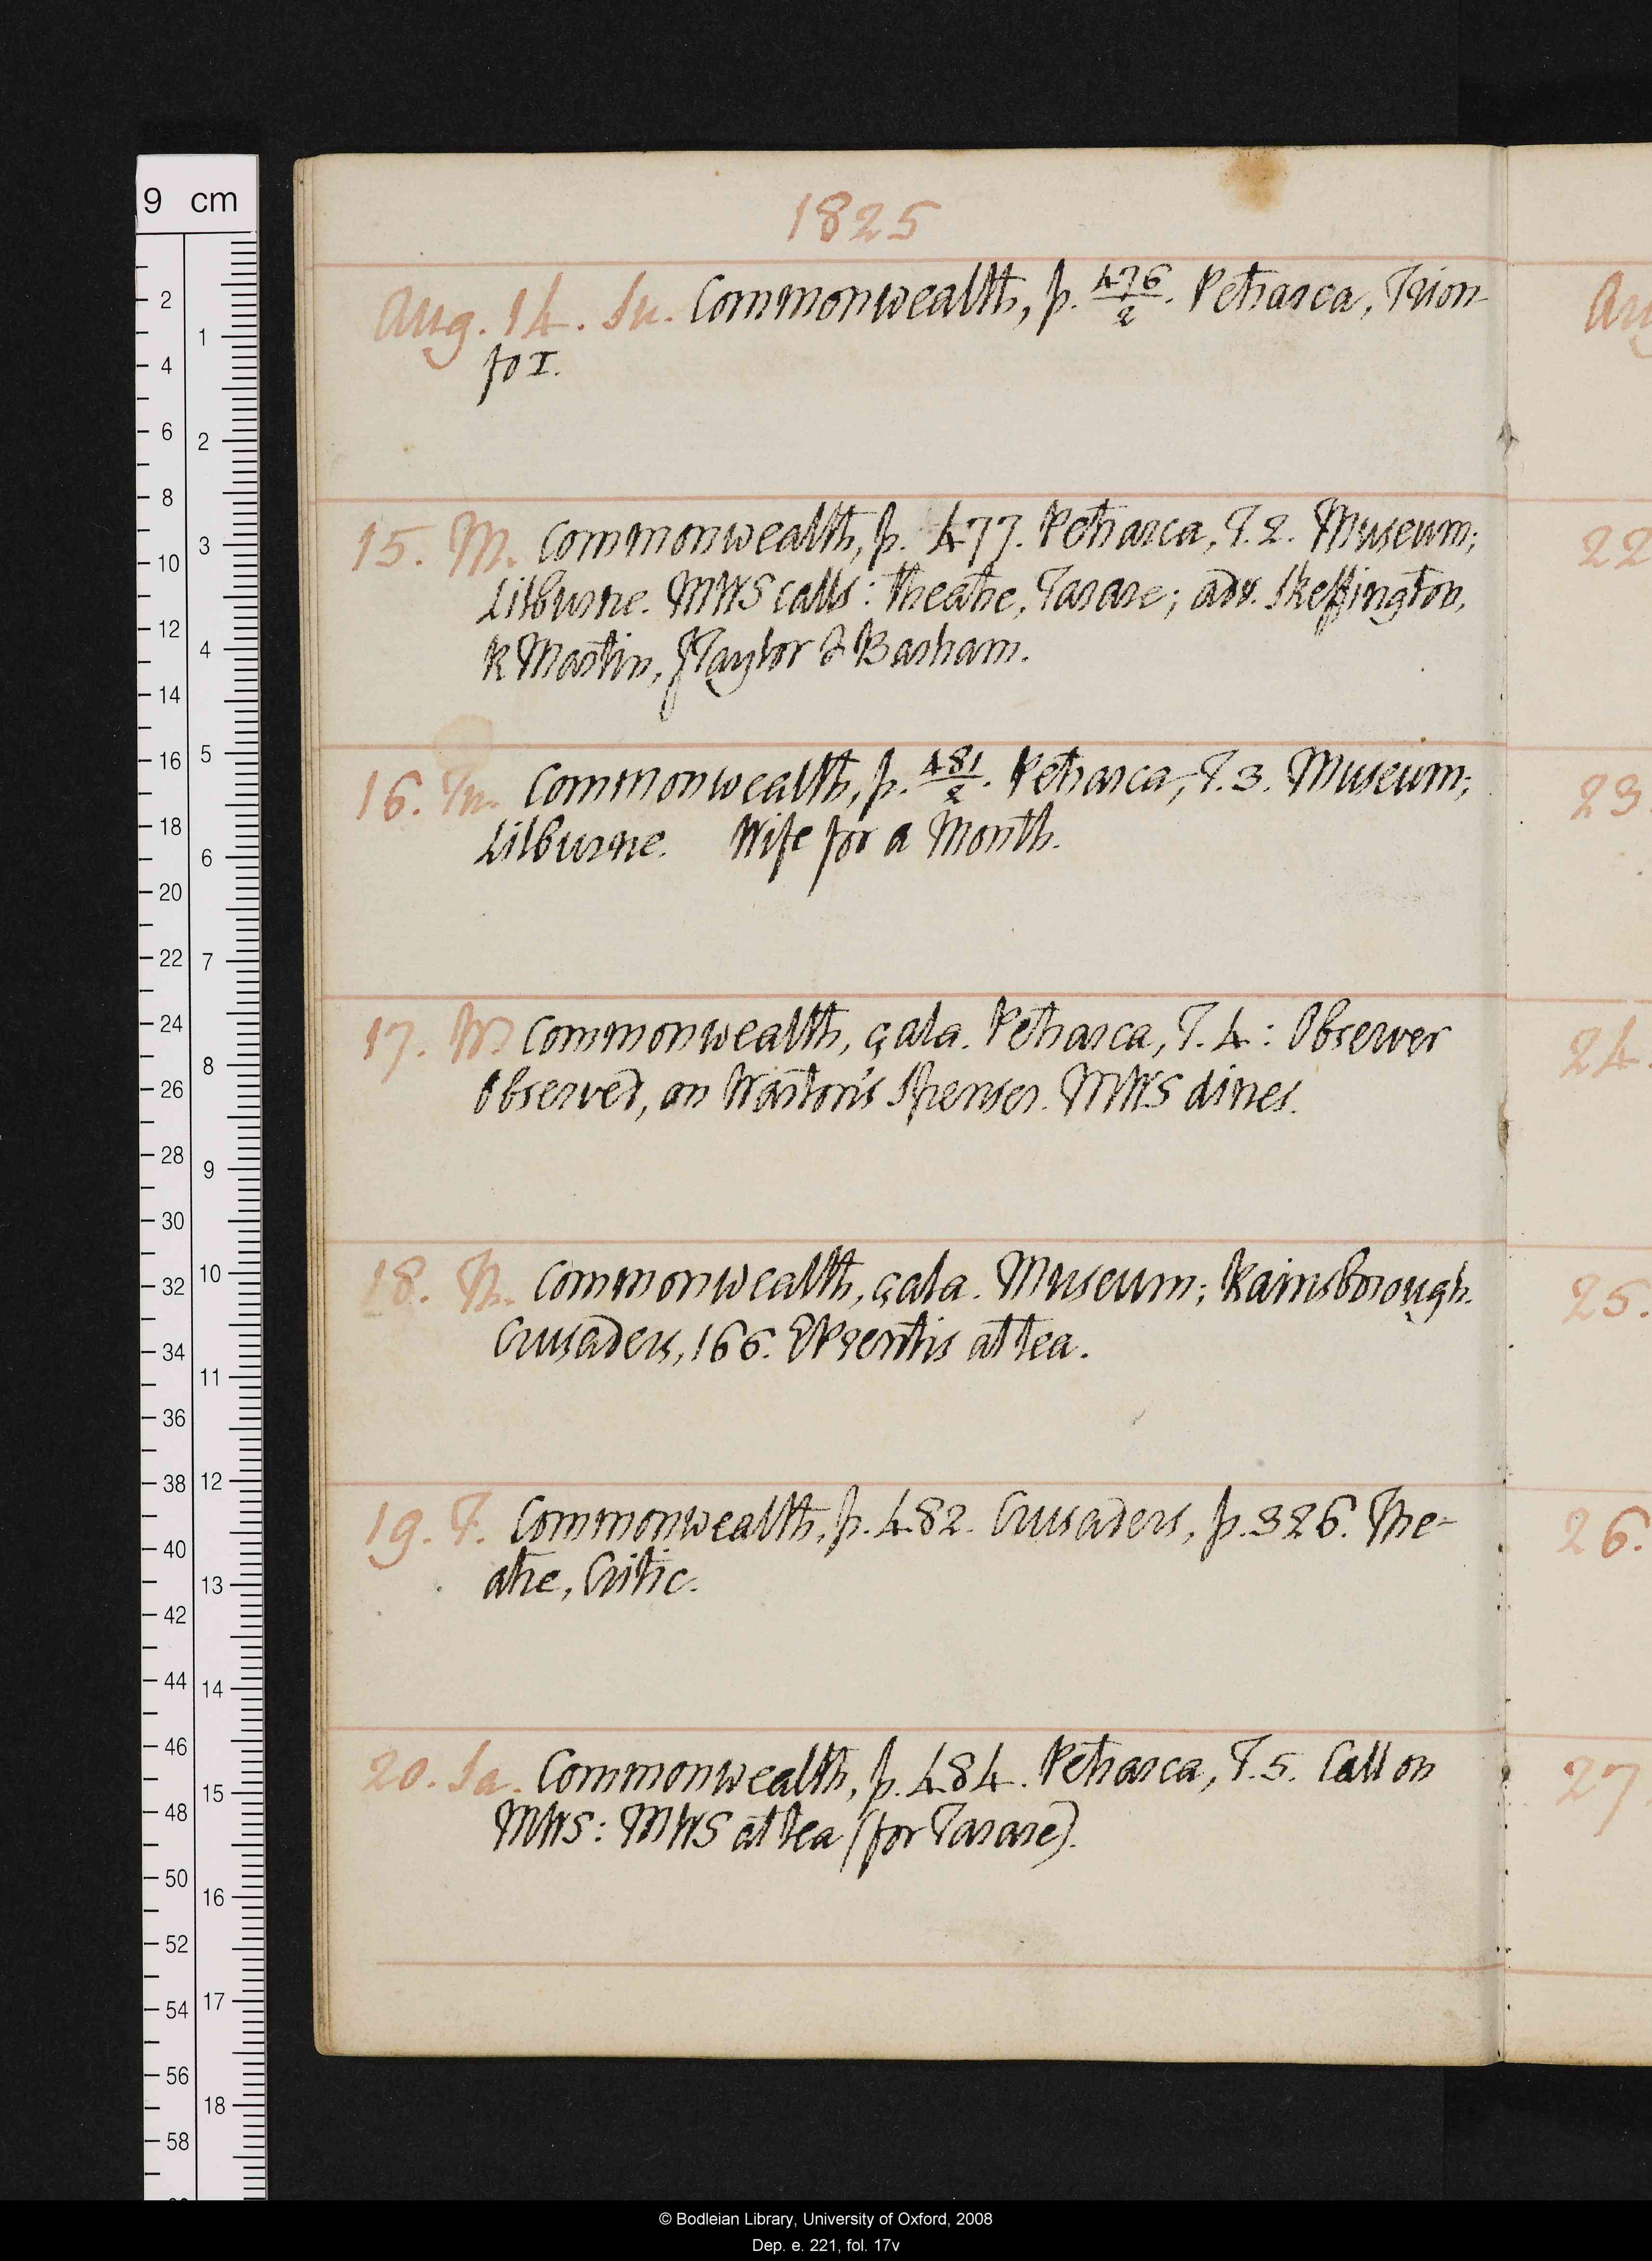 1825
Aug. 14. Su. Commonwealth, p. 476/2. Petrarca, Trion-
fo I.
15. M. Commonwealth, p. 477. Petrarca, T. 2. Museum;
Lilburne. MWS calls: theatre, Tarare; adv. Skeffington,
R Martin, J Taylor & Barham.
16. Tu. Commonwealth, p. 481/2. Petrarca, T. 3. Museum;
Lilburne. Wife for a Month.
17. W. Commonwealth, çala. Petrarca, T. 4: Observer
Observed, on Warton's Spenser. MWS dines.
18. Th. Commonwealth, çala. Museum; Rainsborough.
Crusaders, 166. E Prentis at tea.
19. F. Commonwealth, p. 482. Crusaders, p. 326. The-
atre, Critic.
20. Sa. Commonwealth, p. 484. Petrarca, T. 5. Call on
MWS: MWS at tea (for Tarare).
Au
22
23
24.
25.
26.
27.
9 cm
© Bodleian Library, University of Oxford, 2008
Dep. e. 221, fol. 17v